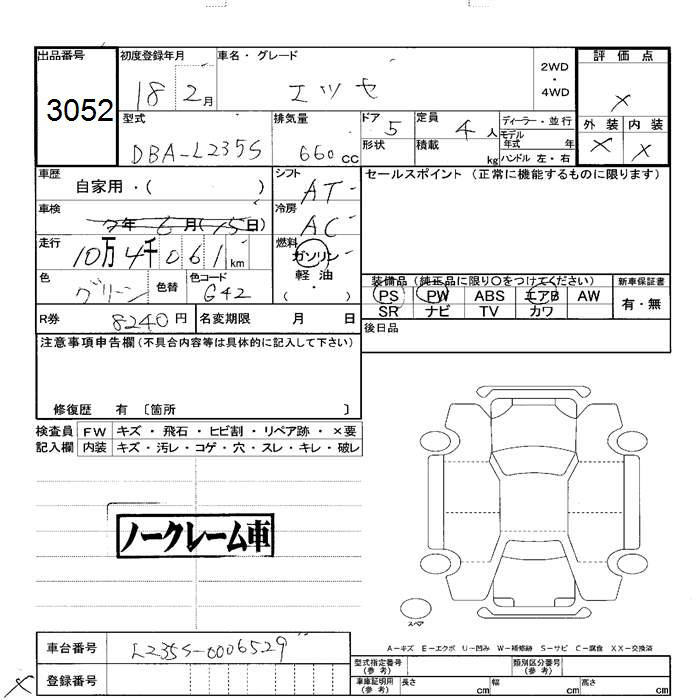 出品番号 初度登録年月 車名・グレード 2WD・4WD 評価点
3052 18 2月 エッセ ×
型式 排気量 ドア 5 定員 4人 ディーラー・並行 外装 内装
DBA-L235S 660cc 形状 積載 kg モデル年式 年 × ×
ハンドル 左・右
車歴 シフト AT セールスポイント (正常に機能するものに限ります)
自家用・( )
車検 7年6月(15日) 冷房 AC
走行 10万4千061km 燃料 ガソリン
色 グリーン 色替 色コード G42 軽油・( ) 装備品 (純正品に限り○をつけてください) 新車保証書
PS PW ABS エアB AW 有・無
R券 8240円 名変期限 月 日 SR ナビ TV カワ
後日品
注意事項申告欄(不具合内容等は具体的に記入して下さい)
修復歴 有 〔箇所 〕
検査員 FW キズ・飛石・ヒビ割・リペア跡・×要
記入欄 内装 キズ・汚レ・コゲ・穴・スレ・キレ・破レ
ノークレーム車
スペア
A-キズ E-エクボ U-凹み W-補修跡 S-サビ C-腐食 XX-交換済
車台番号 L235S-0006529
型式指定番号(参考) 類別区分番号(参考)
× 登録番号 車庫証明用(参考) 長さ cm 幅 cm 高さ cm